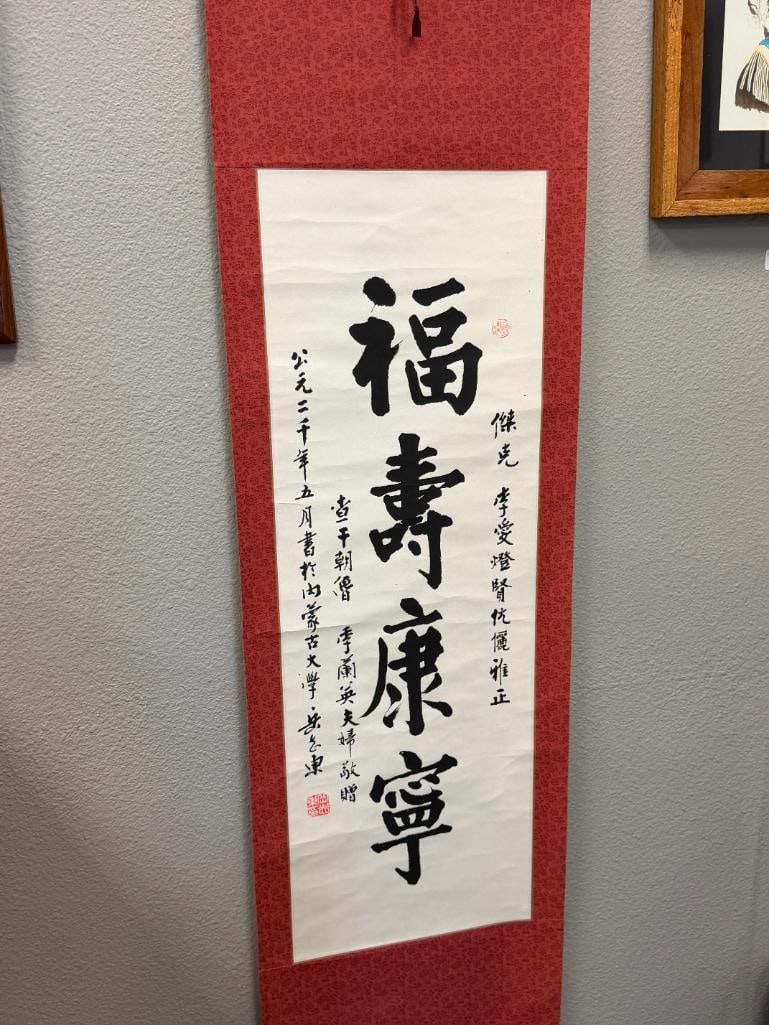 傑克 李愛燈賢伉儷雅正
福壽康寧
查干朝魯 季蘭英夫婦敬贈
公元二千年五月書於內蒙古大學